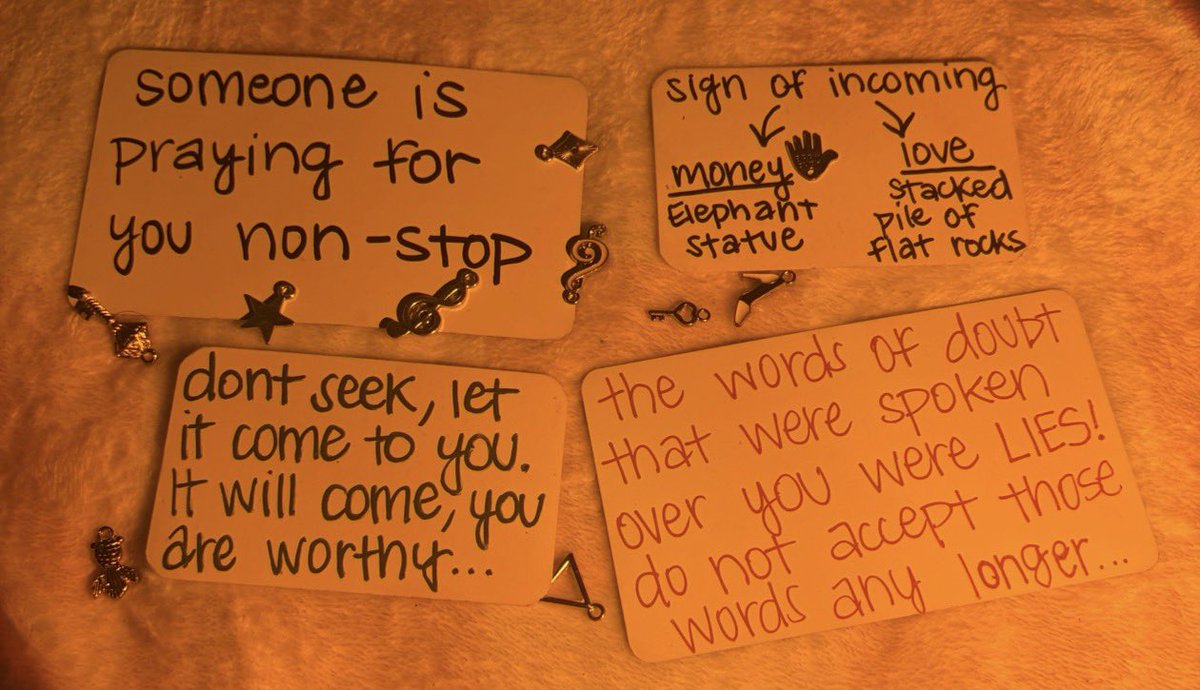 someone is
praying for
you non-stop
sign of incoming
money
Elephant
statue
love
stacked
pile of
flat rocks
dont seek, let
it come to you.
It will come, you
are worthy...
the words of doubt
that were spoken
over you were LIES!
do not accept those
words any longer...